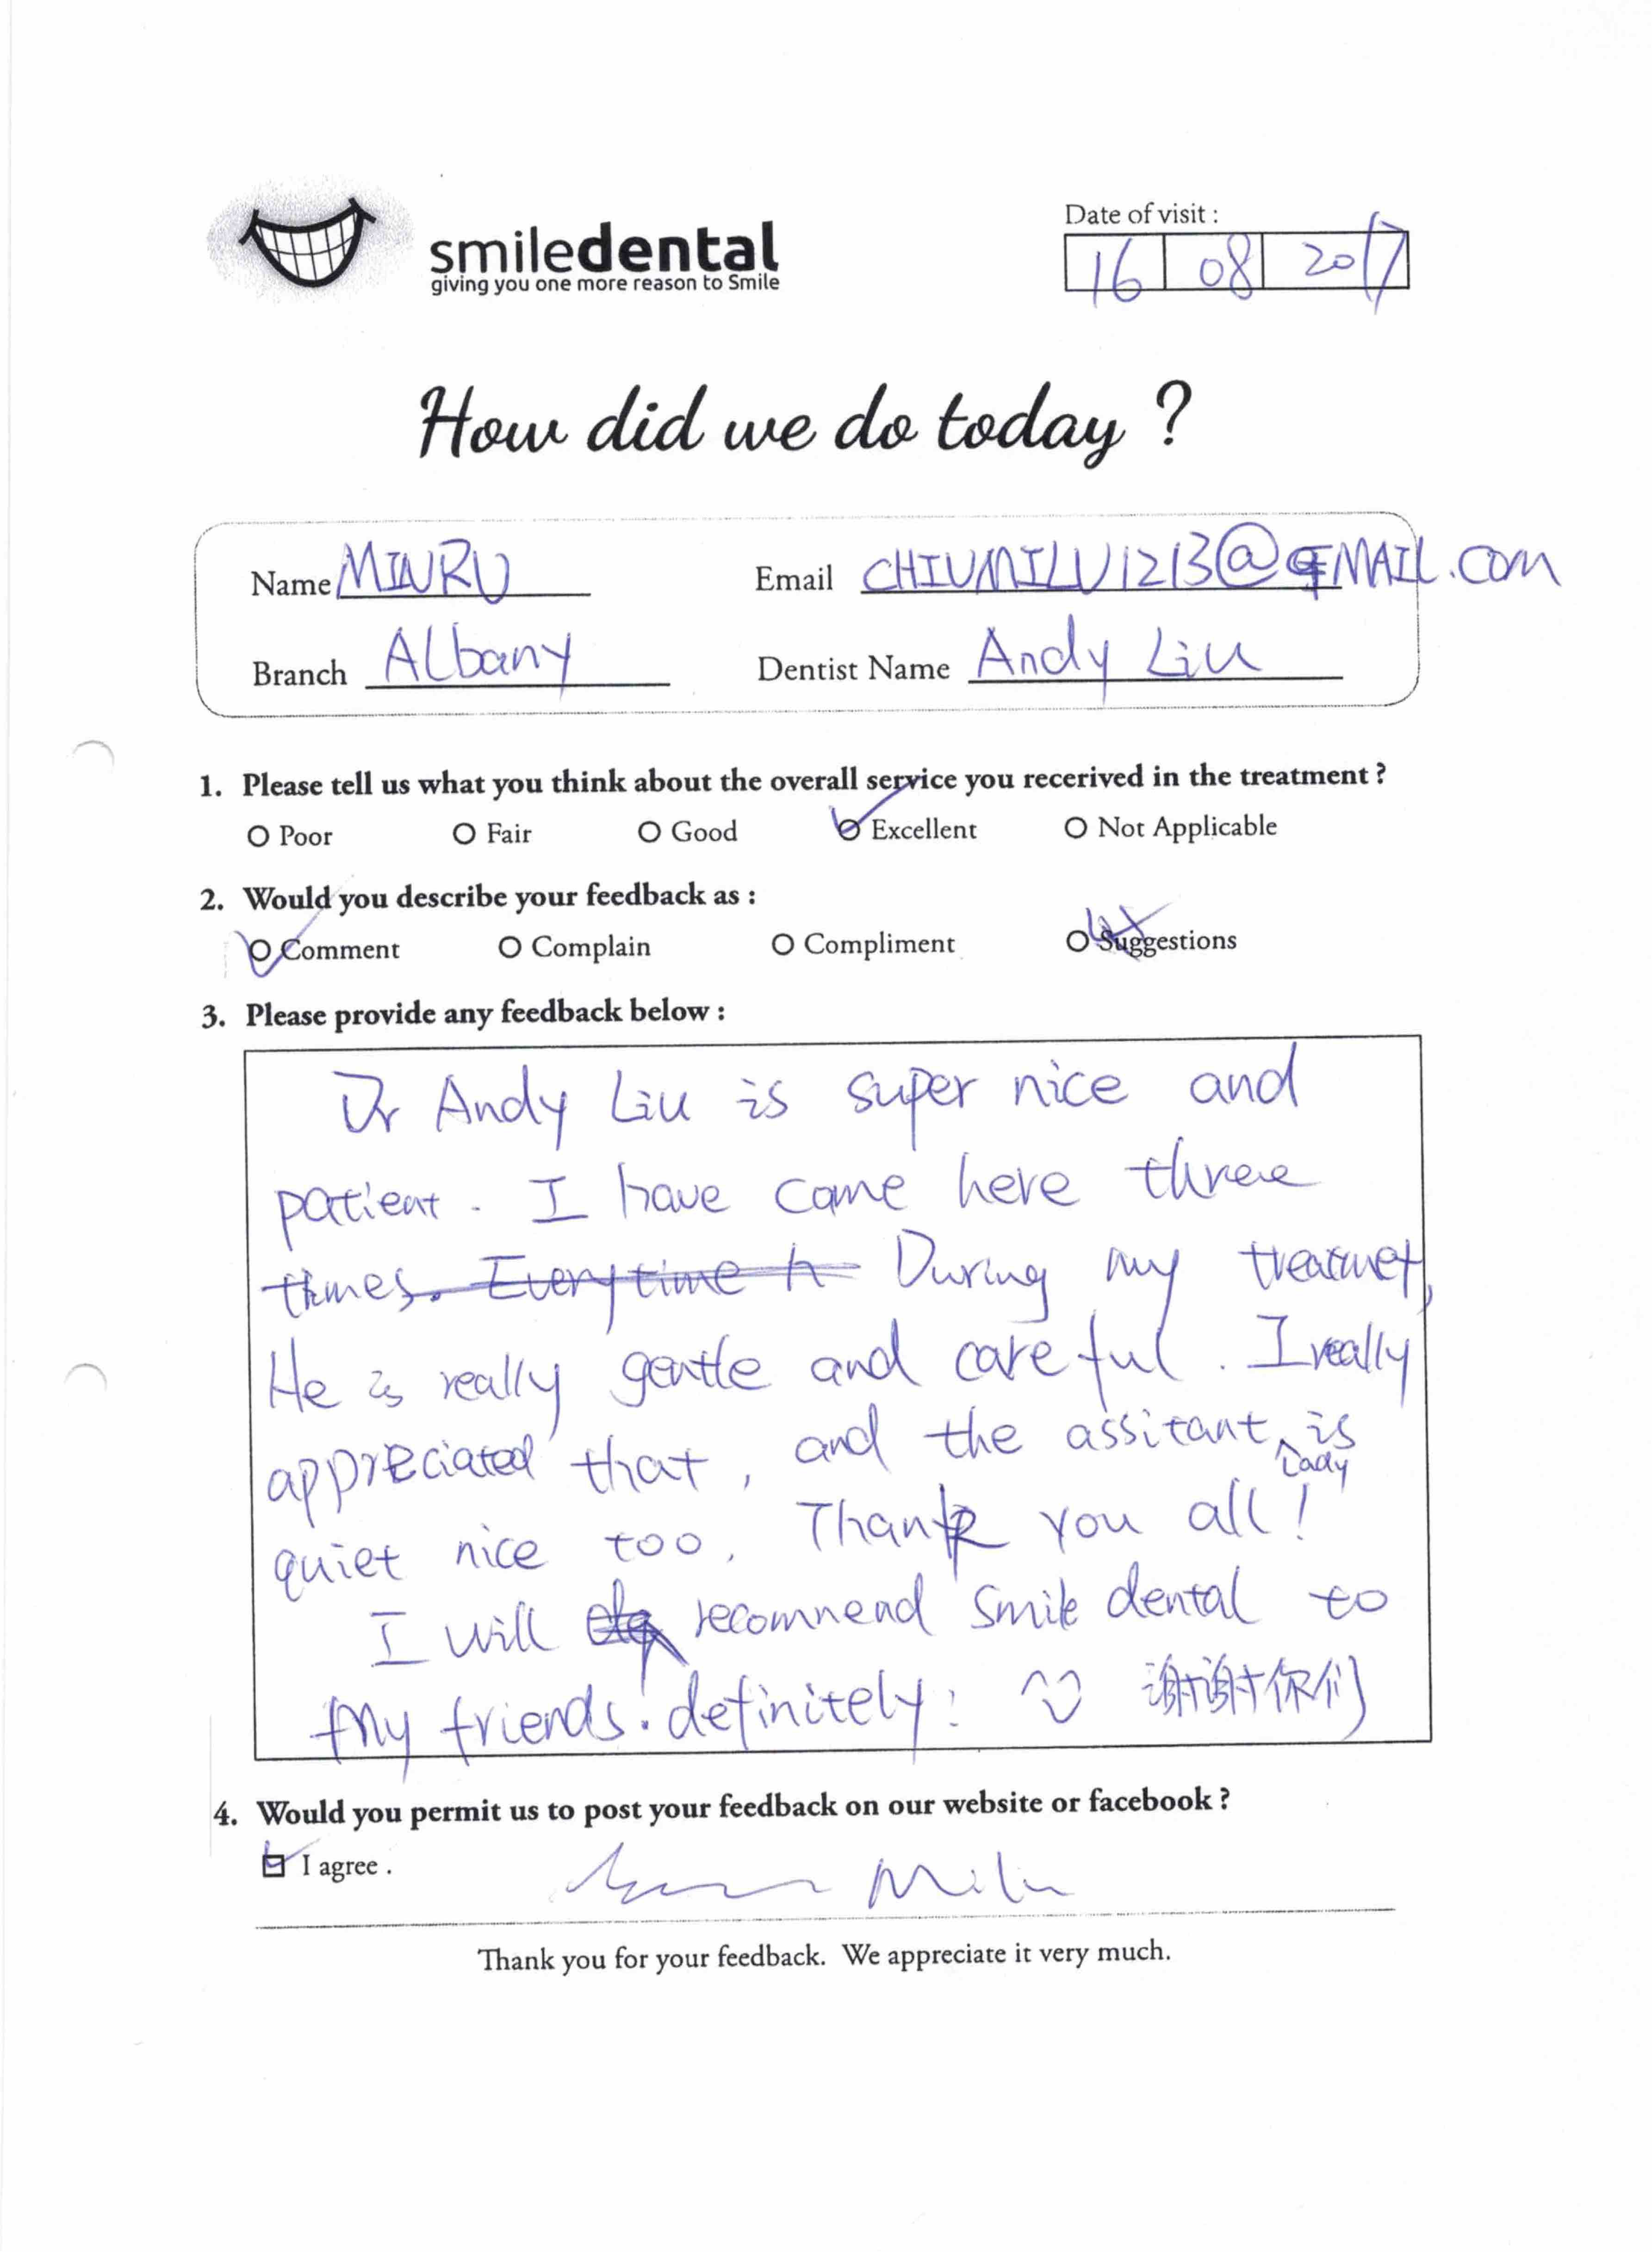 smiledental
giving you one more reason to Smile
Date of visit :
16 08 2017
How did we do today ?
Name MINRU
Email CHIUMILU1213@GMAIL.COM
Branch Albany
Dentist Name Andy Liu
1. Please tell us what you think about the overall service you recerived in the treatment ?
Poor Fair Good Excellent Not Applicable
2. Would you describe your feedback as :
Comment Complain Compliment Suggestions
3. Please provide any feedback below :
Dr Andy Liu is super nice and
patient. I have came here three
times. Everytime h During my treatmet,
He is really gentle and careful. I really
appreciated that, and the assitant is
Lady
quiet nice too, Thank you all!
I will recomnend Smile dental to
my friends. definitely! 谢谢你们
4. Would you permit us to post your feedback on our website or facebook ?
I agree .
Thank you for your feedback. We appreciate it very much.